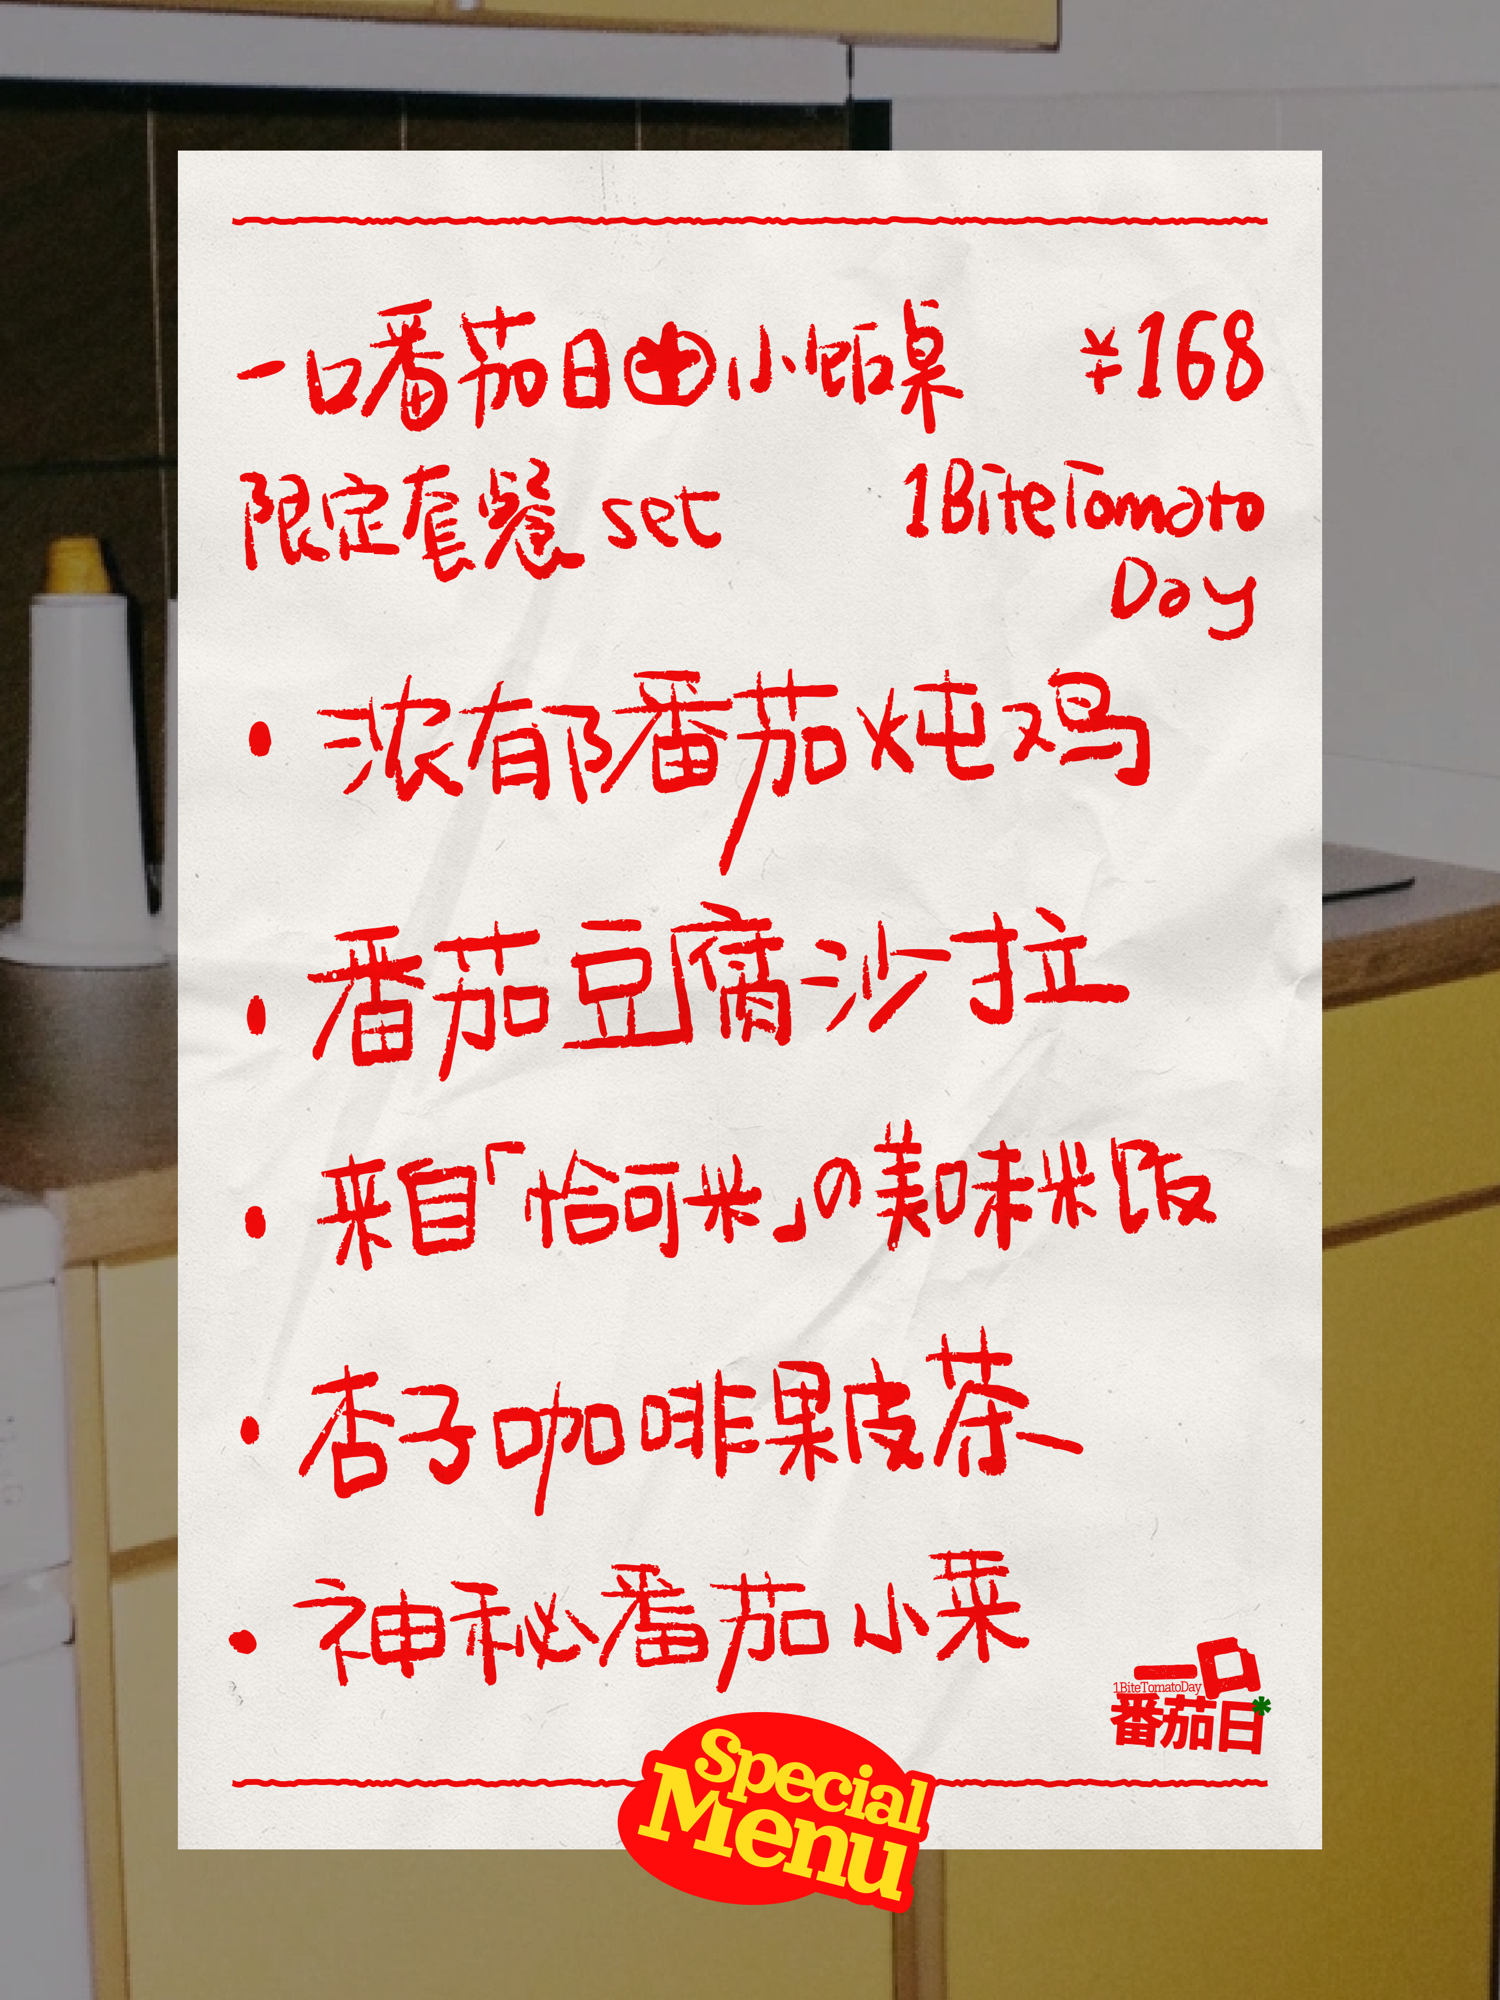 一口番茄日小饭桌 ¥168
限定套餐 set 1BiteTomato
Day
• 浓郁番茄炖鸡
• 番茄豆腐沙拉
• 来自「恰可米」の美味米饭
• 杏子咖啡果皮茶
• 神秘番茄小菜
一口
1BiteTomatoDay
番茄日*
Special
Menu